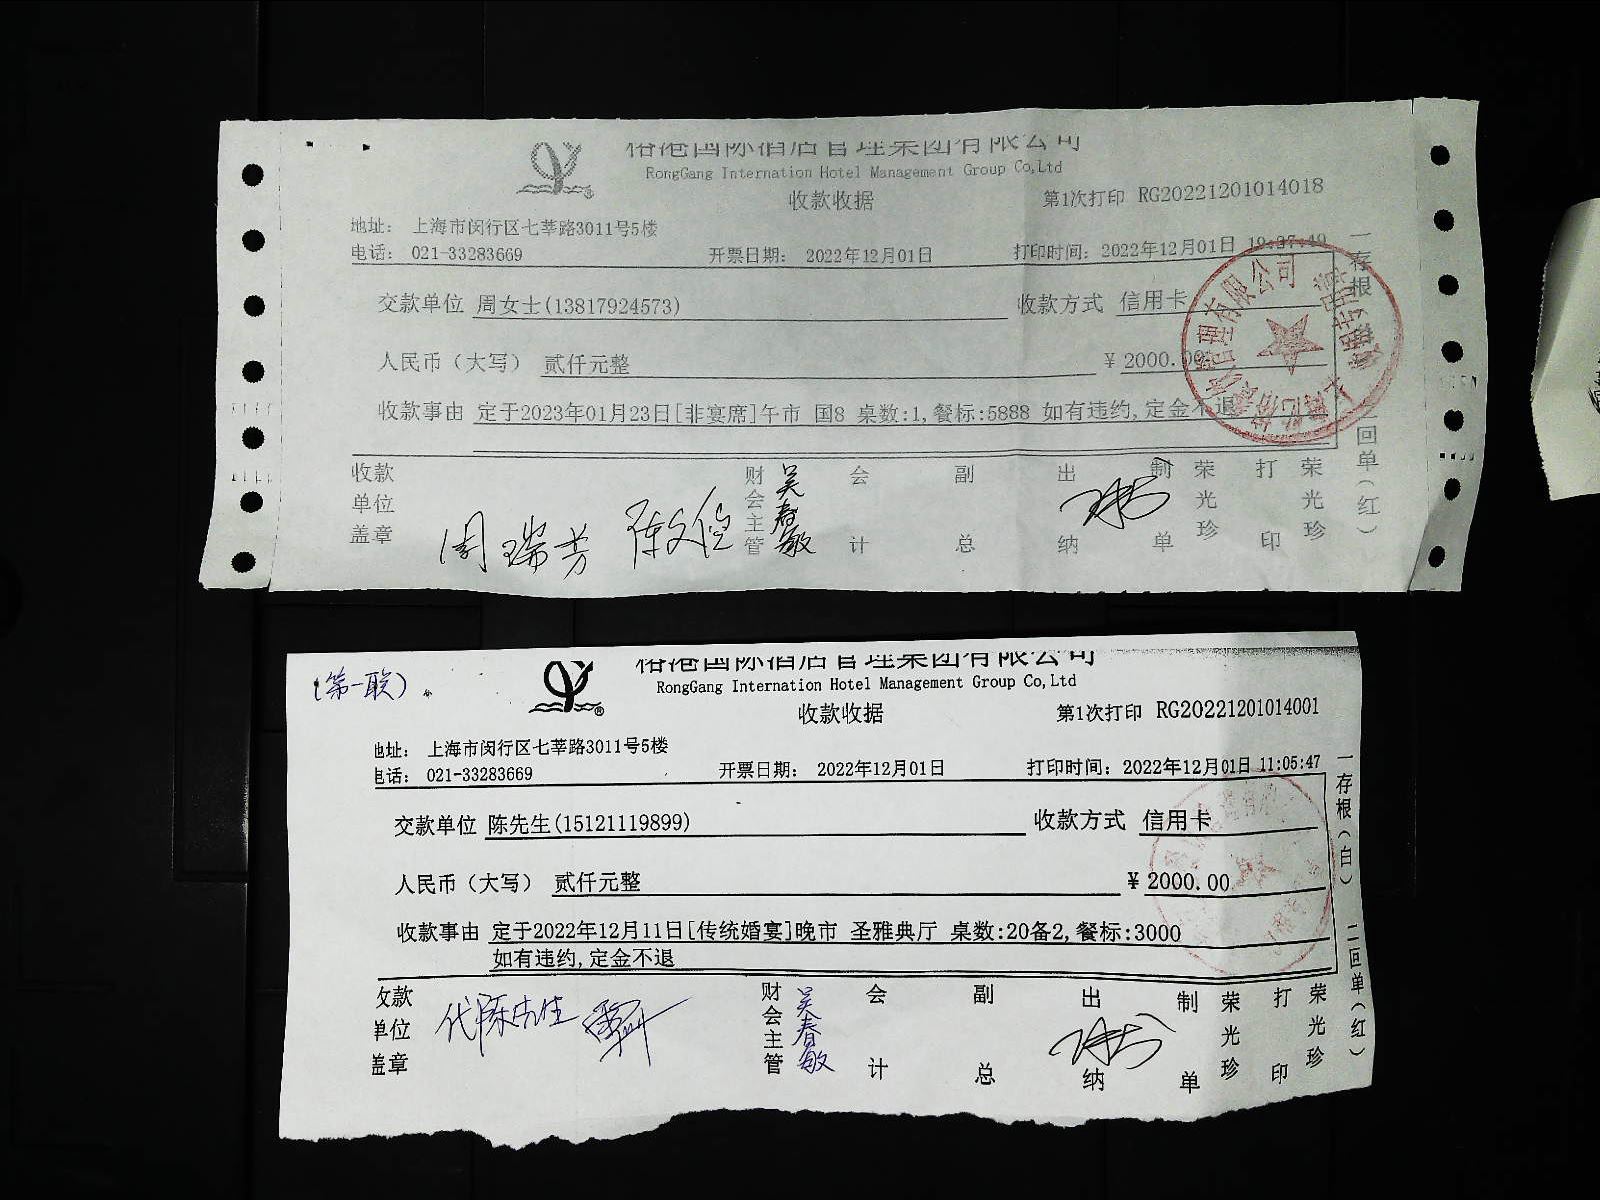 榕港国际酒店管理集团有限公司
RongGang Internation Hotel Management Group Co,Ltd
收款收据
第1次打印 RG20221201014018
地址: 上海市闵行区七莘路3011号5楼
电话: 021-33283669 开票日期: 2022年12月01日 打印时间: 2022年12月01日 19:37:49
交款单位 周女士(13817924573) 收款方式 信用卡
人民币（大写） 贰仟元整 ¥ 2000.00
收款事由 定于2023年01月23日[非宴席]午市 国8 桌数:1,餐标:5888 如有违约,定金不退
收款单位盖章 周瑞芳 财会主管 吴春敏 会计 副总 出纳 制单 荣光珍 打印 荣光珍
一存根
二回单(红)
管理有限公司
(第一联)
榕港国际酒店管理集团有限公司
RongGang Internation Hotel Management Group Co,Ltd
收款收据
第1次打印 RG20221201014001
地址: 上海市闵行区七莘路3011号5楼
电话: 021-33283669 开票日期: 2022年12月01日 打印时间: 2022年12月01日 11:05:47
交款单位 陈先生(15121119899) 收款方式 信用卡
人民币（大写） 贰仟元整 ¥ 2000.00
收款事由 定于2022年12月11日[传统婚宴]晚市 圣雅典厅 桌数:20备2,餐标:3000
如有违约,定金不退
收款单位盖章 代陈先生 财会主管 吴春敏 会计 副总 出纳 制单 荣光珍 打印 荣光珍
一存根(白)
二回单(红)